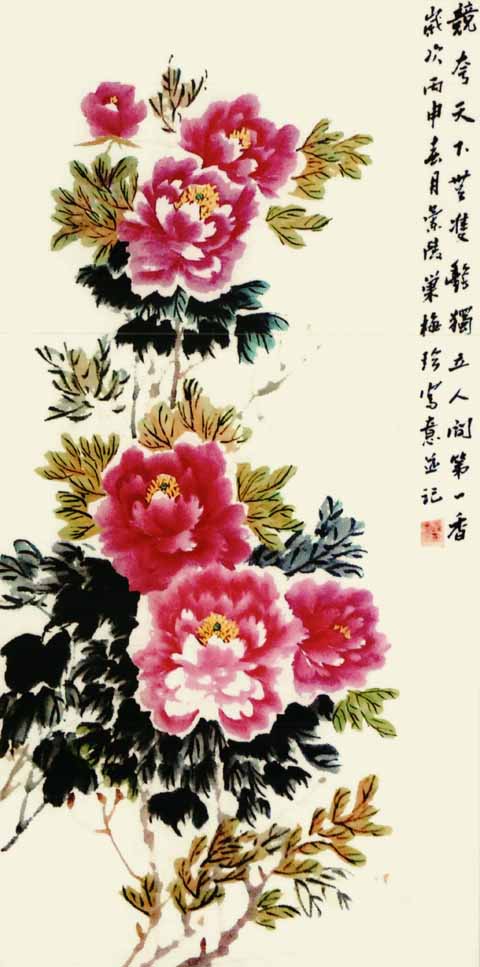 競夸天下無雙艷獨立人間第一香
歲次丙申春月景陵巢梅珍寫意並记